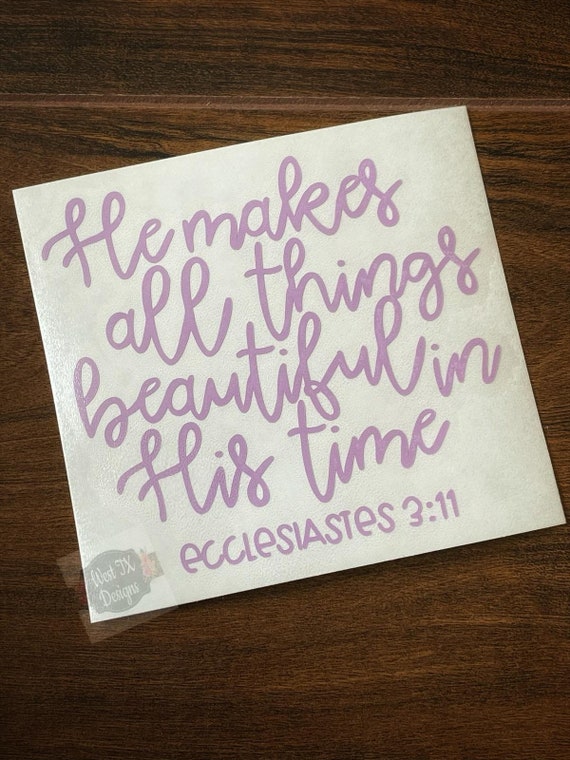 He makes
all things
beautiful in
His time
ecclesiastes 3:11
West TX
Designs